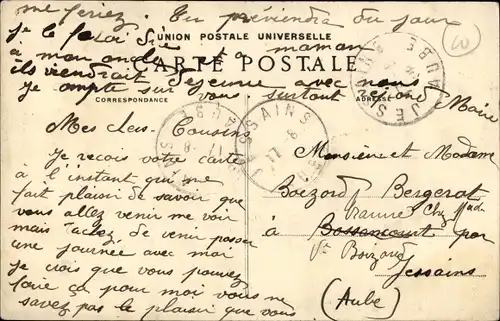 me feriez. Tu préviendra du jour
je le ferai dire
UNION POSTALE UNIVERSELLE
à mon oncle et à maman
CARTE POSTALE
ils viendrait déjeuner avec nous
Je compte sur vous surtout
CORRESPONDANCE
ADRESSE
Marie
Mes chers Cousins
Je reçois votre carte
à l'instant qui me
fait plaisir de savoir que
vous allez venir me voir
mais tachez de venir passer
une journée avec moi
Je crois que vous pouvez
faire ça pour moi vous ne
savez pas le plaisir que vous
JESSAINS
AUBE
Monsieur et Madame
Boizard Bergerat
Chez Mad
à Bossancourt par
Vve Boizard
Jessains
(Aube)